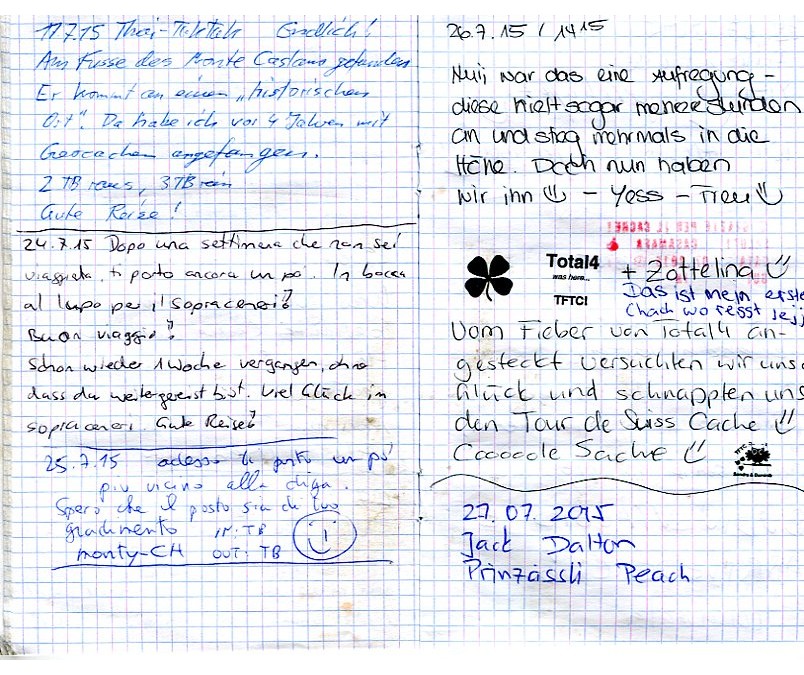 17.7.15 Thai-Teletah Endlich!
Am Fusse des Monte Castano gefunden
Er kommt an einen „historischen
Ort". Da habe ich vor 4 Jahren mit
Geocachen angefangen.
2 TB raus, 3 TB rein
Gute Reise!
24.7.15 Dopo una settimana che non sei
viaggiata, ti porto ancora un pò. In bocca
al lupo per il sopraceneri!
Buon viaggio!
Schon wieder 1 Woche vergangen, ohne
dass du weitergereist bist. Viel Glück in
sopraceneri. Gute Reise!
25.7.15 adesso ti porto un pò
più vicino alla diga.
Spero che il posto sia di tuo
gradimento IN: TB
monty-CH OUT: TB
26.7.15 / 14 15
Nuij war das eine Aufregung -
diese hielt sogar mehrere Stunden
an und stieg mehrmals in die
Höhe. Doch nun haben
wir ihn - Yess - Freu
Total4
was here...
TFTC!
+ Zottelina
Das ist mein erste
Chach wo
Vom Fieber von Total4 an-
gesteckt versuchten wir unser
Glück und schnappten uns
den Tour de Suiss Cache
Cooooole Sache
27.07.2015
Jack Dalton
Prinzässli Peach